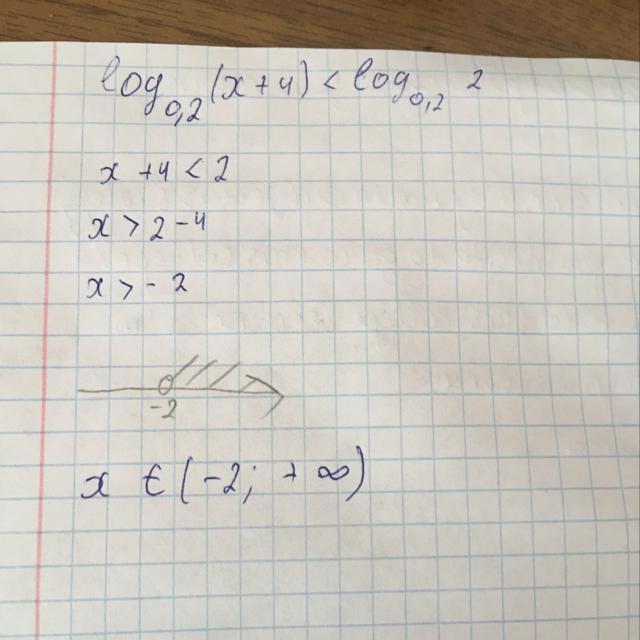 log₀,₂ (x+4) < log₀,₂ 2
x +4 < 2
x > 2 -4
x > - 2
-2
x ∈ (-2; +∞)